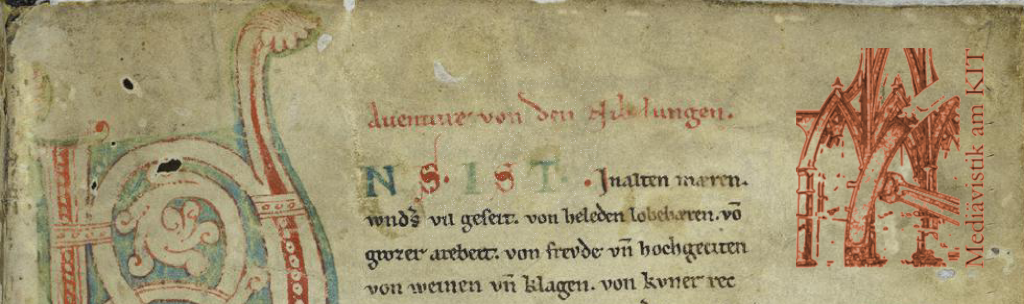 Auenture von den Nibelungen.
NS. IST. Jnalten mæren.
wnds vil geseit. von heleden lobebæren. võ
grozer arebeit. von frevde vñ hochgeciten
von weinen vñ klagen. von kvner rec
Mediävistik am KIT